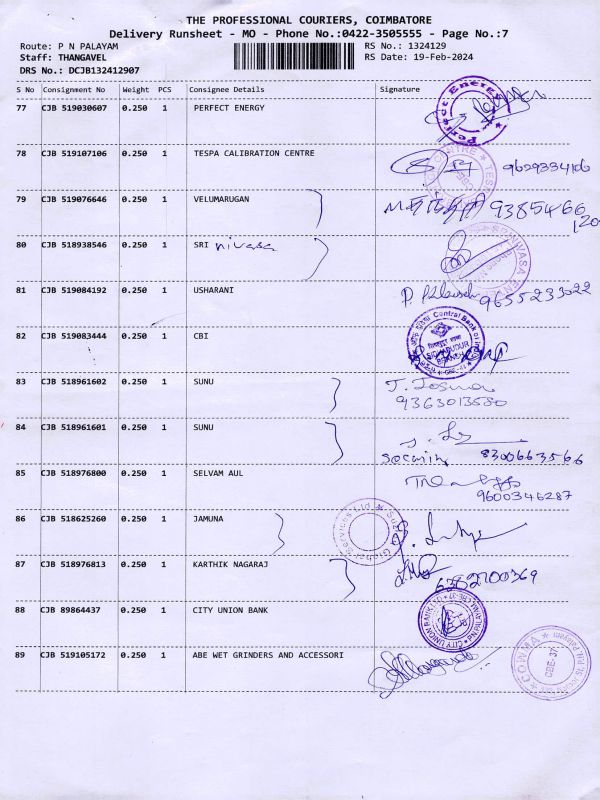 THE PROFESSIONAL COURIERS, COIMBATORE
Delivery Runsheet - MO - Phone No.:0422-3505555 - Page No.:7
Route: P N PALAYAM RS No.: 1324129
Staff: THANGAVEL RS Date: 19-Feb-2024
DRS No.: DCJB132412907
S No Consignment No Weight PCS Consignee Details Signature
77 CJB 519030607 0.250 1 PERFECT ENERGY
78 CJB 519107106 0.250 1 TESPA CALIBRATION CENTRE 9629334106
79 CJB 519076646 0.250 1 VELUMARUGAN 9385466
120
80 CJB 518938546 0.250 1 SRI nivasa
81 CJB 519084192 0.250 1 USHARANI P. 9655233022
82 CJB 519083444 0.250 1 CBI
Central Bank of
83 CJB 518961602 0.250 1 SUNU J. Josua
9363013580
84 CJB 518961601 0.250 1 SUNU
8300663566
85 CJB 518976800 0.250 1 SELVAM AUL
9600346287
86 CJB 518625260 0.250 1 JAMUNA
87 CJB 518976813 0.250 1 KARTHIK NAGARAJ
6382700369
88 CJB 89864437 0.250 1 CITY UNION BANK
CITY UNION BANK LTD
89 CJB 519105172 0.250 1 ABE WET GRINDERS AND ACCESSORI
CBE-37